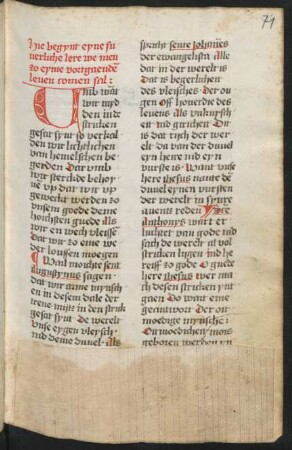 71
hye begynt eyne su
uerliche lere we men
zo eyme
leuen comen sal:
Vmb wat
wir myd
den
stricken
gesat syn so verkal
den wir lichtlichen
van hemelschen be
gerden Dar vmb
wir stedich beho
ue vp dat wir vp
gewackt werden zo
vnsem goede deme
hoichsten guede als
wir en wech vliesse
Dat wir zo eme we
der louffen moegen
Want mochte sent
augustynus sagen
dat wir arme mynsch
en in desem dale der
trene myt in den strick
gesat syn De werelt
vnse eygen vleysch
ind deme duuel als
spricht sente Johannes
der ewangelista Alle
dat in der werelt is
Dat is begerlichen
des vleisches Der ou
gen Off houerdie des
leuens
ind giricheit Dat
is dat rych der wer
elt da van der duuel
eyn here ind eyn
vurste is Want vnse
here ihesus nante de
duuel eynen vursten
der werelt in syme
auent reden Sente
anthonys wart er
luchtet van gode ind
sach de werelt al vol
stricken lygen ind he
reiff zo gode O guede
here ihesus wer mach
desen stricken
gaen Do wart eme
geantwort Der oit
moedige mynsche
Oitmoedicheit mois
geboren werden vyss